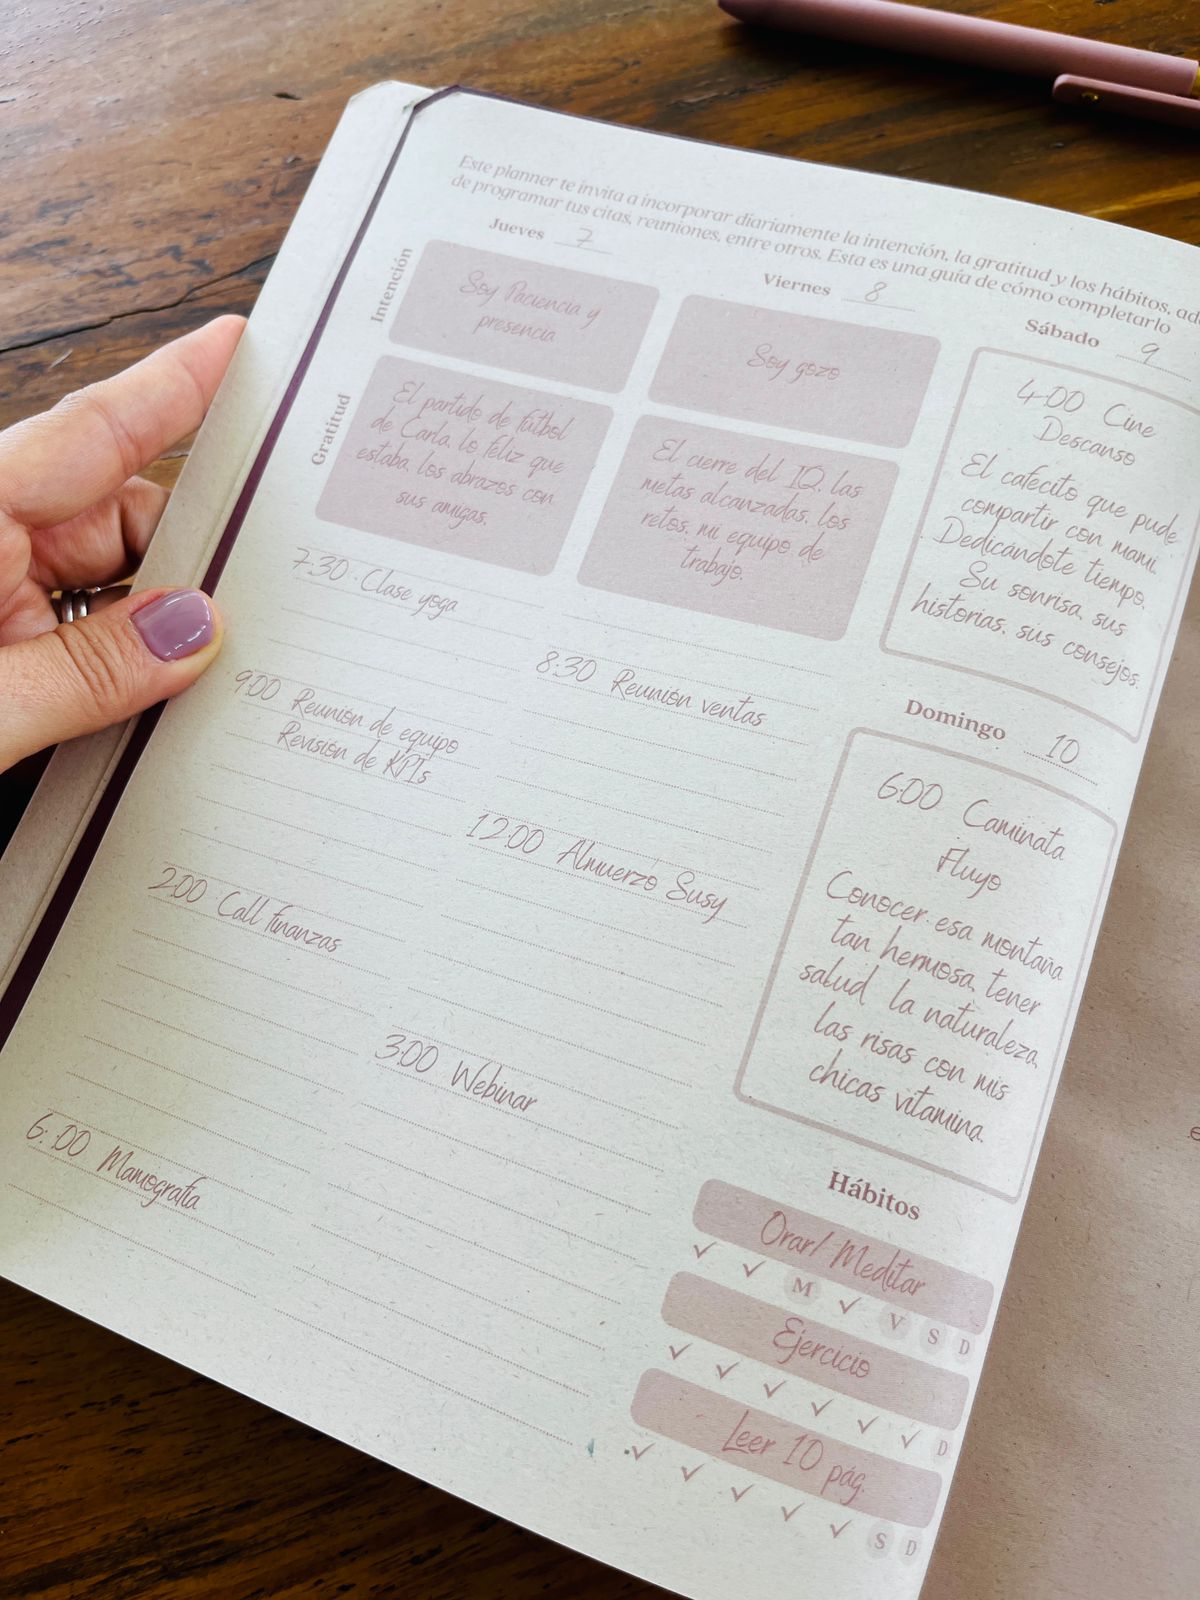 Este planner te invita a incorporar diariamente la intención, la gratitud y los hábitos,
de programar tus citas, reuniones, entre otros. Esta es una guía de cómo completarlo
Jueves 7
Intención
Soy Paciencia y
presencia
Gratitud
El partido de fútbol
de Carla, lo feliz que
estaba, los abrazos con
sus amigas.
7:30 Clase yoga
9:00 Reunión de equipo
Revisión de KPIs
2:00 Call finanzas
6:00 Mamografía
Viernes 8
Soy gozo
El cierre del IQ, las
metas alcanzadas, los
retos, mi equipo de
trabajo.
8:30 Reunión ventas
12:00 Almuerzo Susy
3:00 Webinar
Sábado 9
4:00 Cine
Descanso
El cafecito que pude
compartir con mami.
Dedicándote tiempo.
Su sonrisa, sus
historias, sus consejos.
Domingo 10
6:00 Caminata
Fluyo
Conocer esa montaña
tan hermosa, tener
salud la naturaleza,
las risas con mis
chicas vitamina.
Hábitos
Orar/ Meditar
✓ ✓ M ✓ V S D
Ejercicio
✓ ✓ ✓ ✓ ✓ ✓ D
Leer 10 pág.
✓ ✓ ✓ ✓ ✓ S D